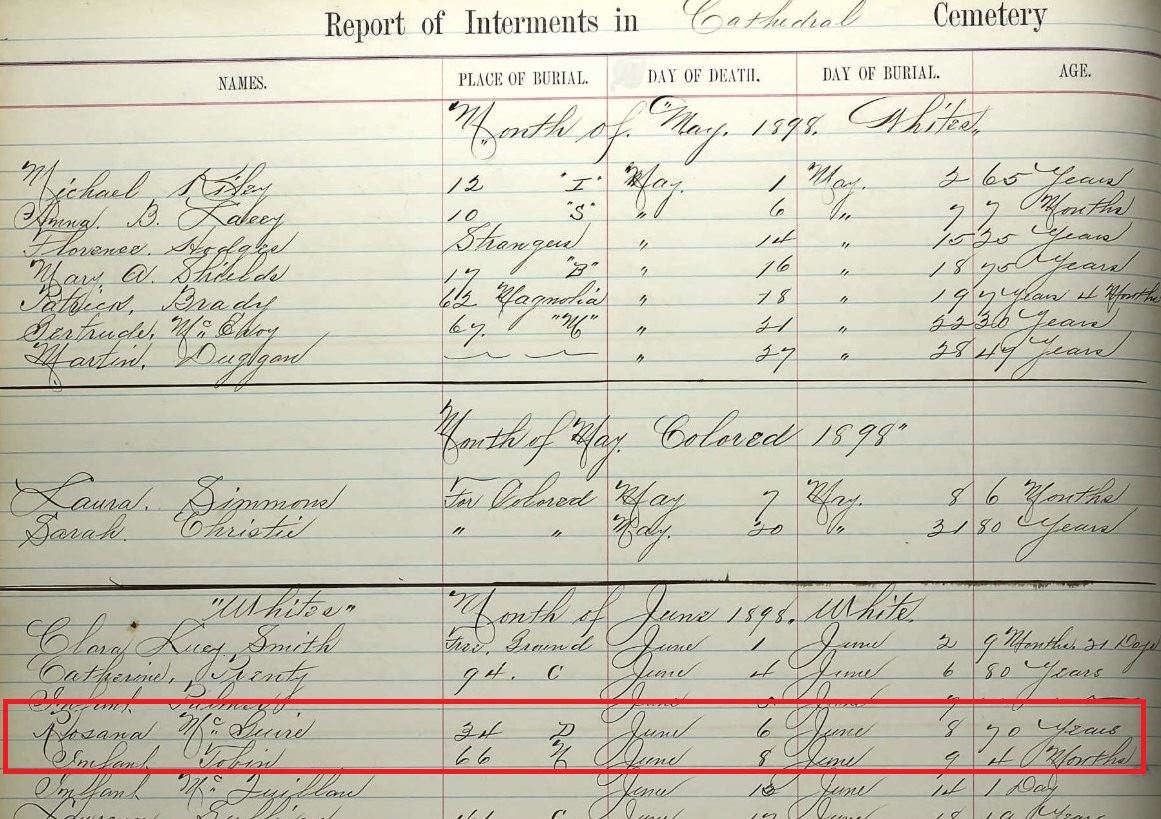 Report of Interments in Cathedral Cemetery
NAMES. PLACE OF BURIAL. DAY OF DEATH. DAY OF BURIAL. AGE.
Month of. "May. 1898. Whites"
Michael Riley 12 "I" May. 1 May. 2 65 Years
Anna. B. Lacey 10 "S" " 6 " 7 7 Months
Florence. Hodges Strangers " 14 " 15 25 Years
Mary A. Shields 17 "B" " 16 " 18 75 Years
Patrick. Brady 62 Magnolia " 18 " 19 7 Years 4 Months
Gertrude. McElroy 67. "M" " 21 " 22 30 Years
Martin. Duggan " 27 " 28 49 Years
Month of May. Colored 1898"
Laura. Simmons For Colored May 7 May. 8 6 Months
Sarah. Christie " " May. 30 " 31 80 Years
"Whites" Month of June 1898. White.
Clara Lucy Smith Free. Ground June 1 June 2 9 Months. 21 Days
Catherine. Prenty 94. C June 4 June 6 80 Years
Infant Palmer
Rosana McGuire 34 D June 6 June 8 70 Years
Infant Tobin 66 N June 8 June 9 4 Months
Infant McQuillan June 13 June 14 1 Day